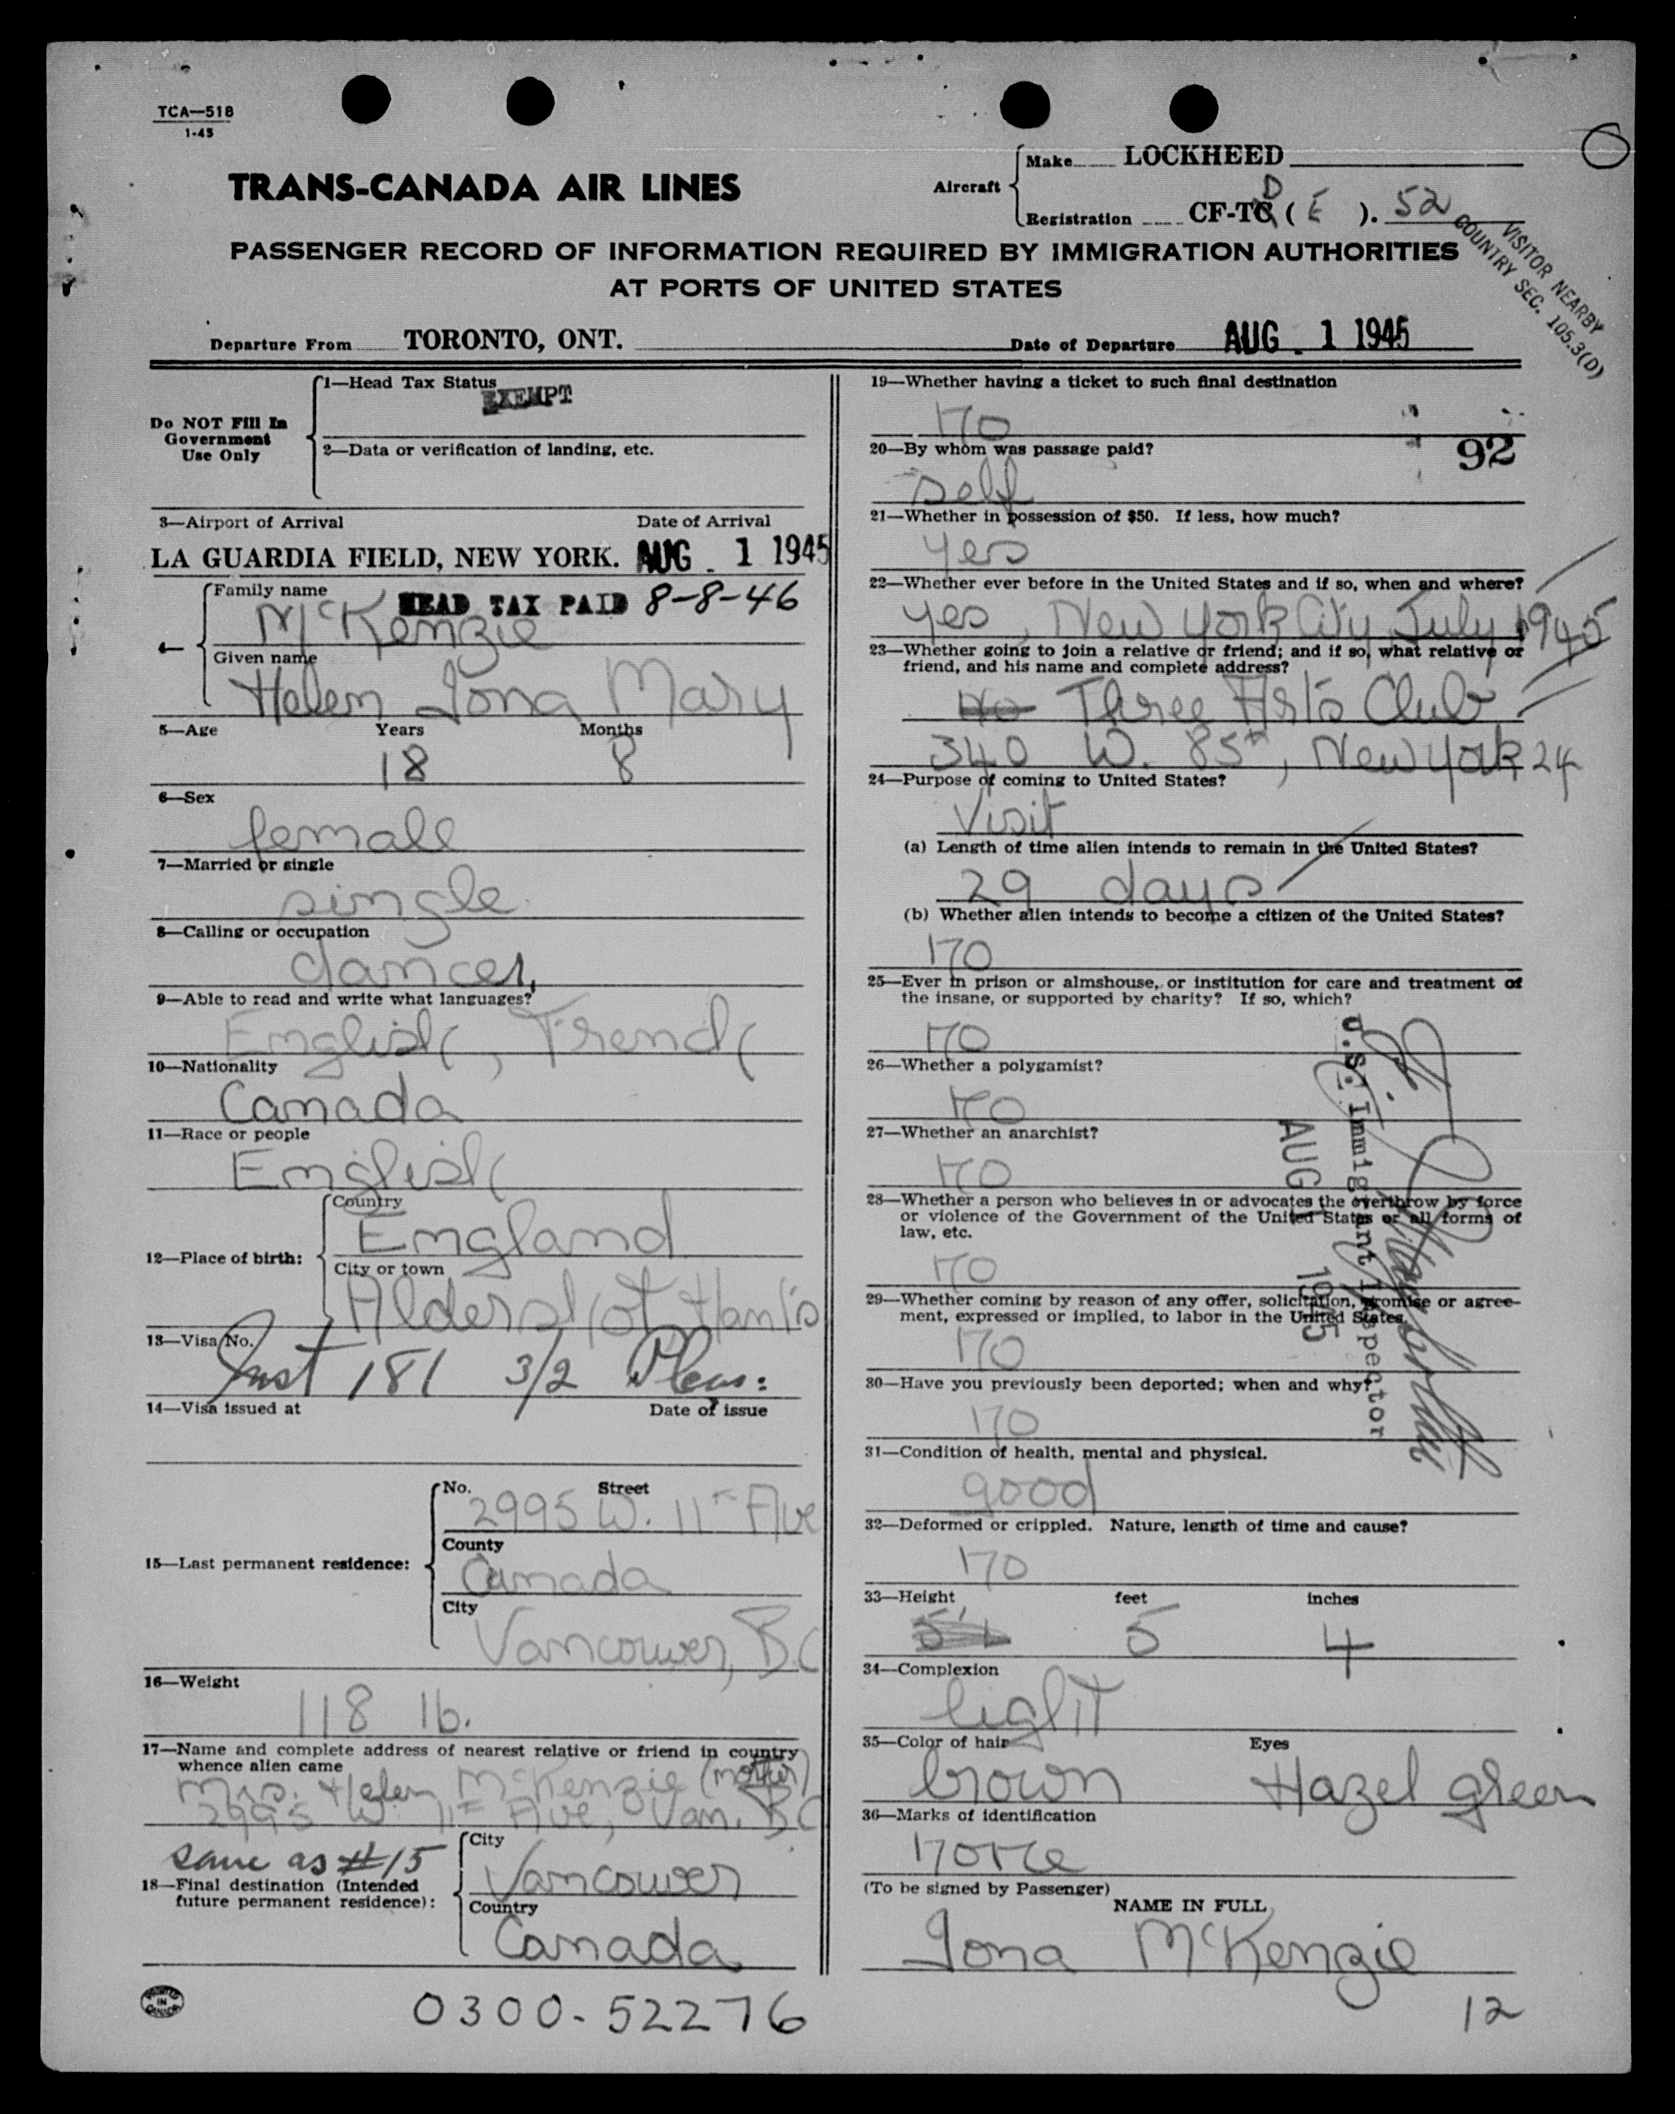 TCA—518
1-45
TRANS-CANADA AIR LINES
Aircraft
Make LOCKHEED
Registration CF-TC D ( E ). 52
VISITOR NEARBY
COUNTRY SEC. 105.3(D)
PASSENGER RECORD OF INFORMATION REQUIRED BY IMMIGRATION AUTHORITIES
AT PORTS OF UNITED STATES
Departure From TORONTO, ONT. Date of Departure AUG. 1 1945
Do NOT Fill In
Government
Use Only
1—Head Tax Status
EXEMPT
2—Data or verification of landing, etc.
3—Airport of Arrival Date of Arrival
LA GUARDIA FIELD, NEW YORK. AUG. 1 1945
4—
Family name
HEAD TAX PAID 8-8-46
McKenzie
Given name
Helen Iona Mary
5—Age Years Months
18 8
6—Sex
female
7—Married or single
single
8—Calling or occupation
dancer
9—Able to read and write what languages?
English, French
10—Nationality
Canada
11—Race or people
English
12—Place of birth:
Country
England
City or town
Aldershot Hants
13—Visa No.
181 3/2
14—Visa issued at Date of issue
15—Last permanent residence:
No. Street
2995 W. 11th Ave
County
Canada
City
Vancouver, B.C.
16—Weight
118 lb.
17—Name and complete address of nearest relative or friend in country
whence alien came
Mrs. Helen McKenzie (mother)
2995 W. 11th Ave, Van. BC
same as #15
18—Final destination (Intended
future permanent residence):
City
Vancouver
Country
Canada
PRINTED
IN
CANADA
0300-52276
19—Whether having a ticket to such final destination
no
92
20—By whom was passage paid?
self
21—Whether in possession of $50. If less, how much?
yes
22—Whether ever before in the United States and if so, when and where?
yes, New York City July 1945
23—Whether going to join a relative or friend; and if so, what relative or
friend, and his name and complete address?
no Three Arts Club
340 W. 85th, New York 24
24—Purpose of coming to United States?
Visit
(a) Length of time alien intends to remain in the United States?
29 days
(b) Whether alien intends to become a citizen of the United States?
no
25—Ever in prison or almshouse, or institution for care and treatment of
the insane, or supported by charity? If so, which?
no
26—Whether a polygamist?
no
27—Whether an anarchist?
no
28—Whether a person who believes in or advocates the overthrow by force
or violence of the Government of the United States or all forms of
law, etc.
no
29—Whether coming by reason of any offer, solicitation, promise or agree-
ment, expressed or implied, to labor in the United States.
no
30—Have you previously been deported; when and why?
no
U.S. Immigrant Inspector
AUG 1 1945
31—Condition of health, mental and physical.
good
32—Deformed or crippled. Nature, length of time and cause?
no
33—Height feet inches
5 4
34—Complexion
light
35—Color of hair Eyes
brown Hazel green
36—Marks of identification
none
(To be signed by Passenger)
NAME IN FULL
Iona McKenzie
12